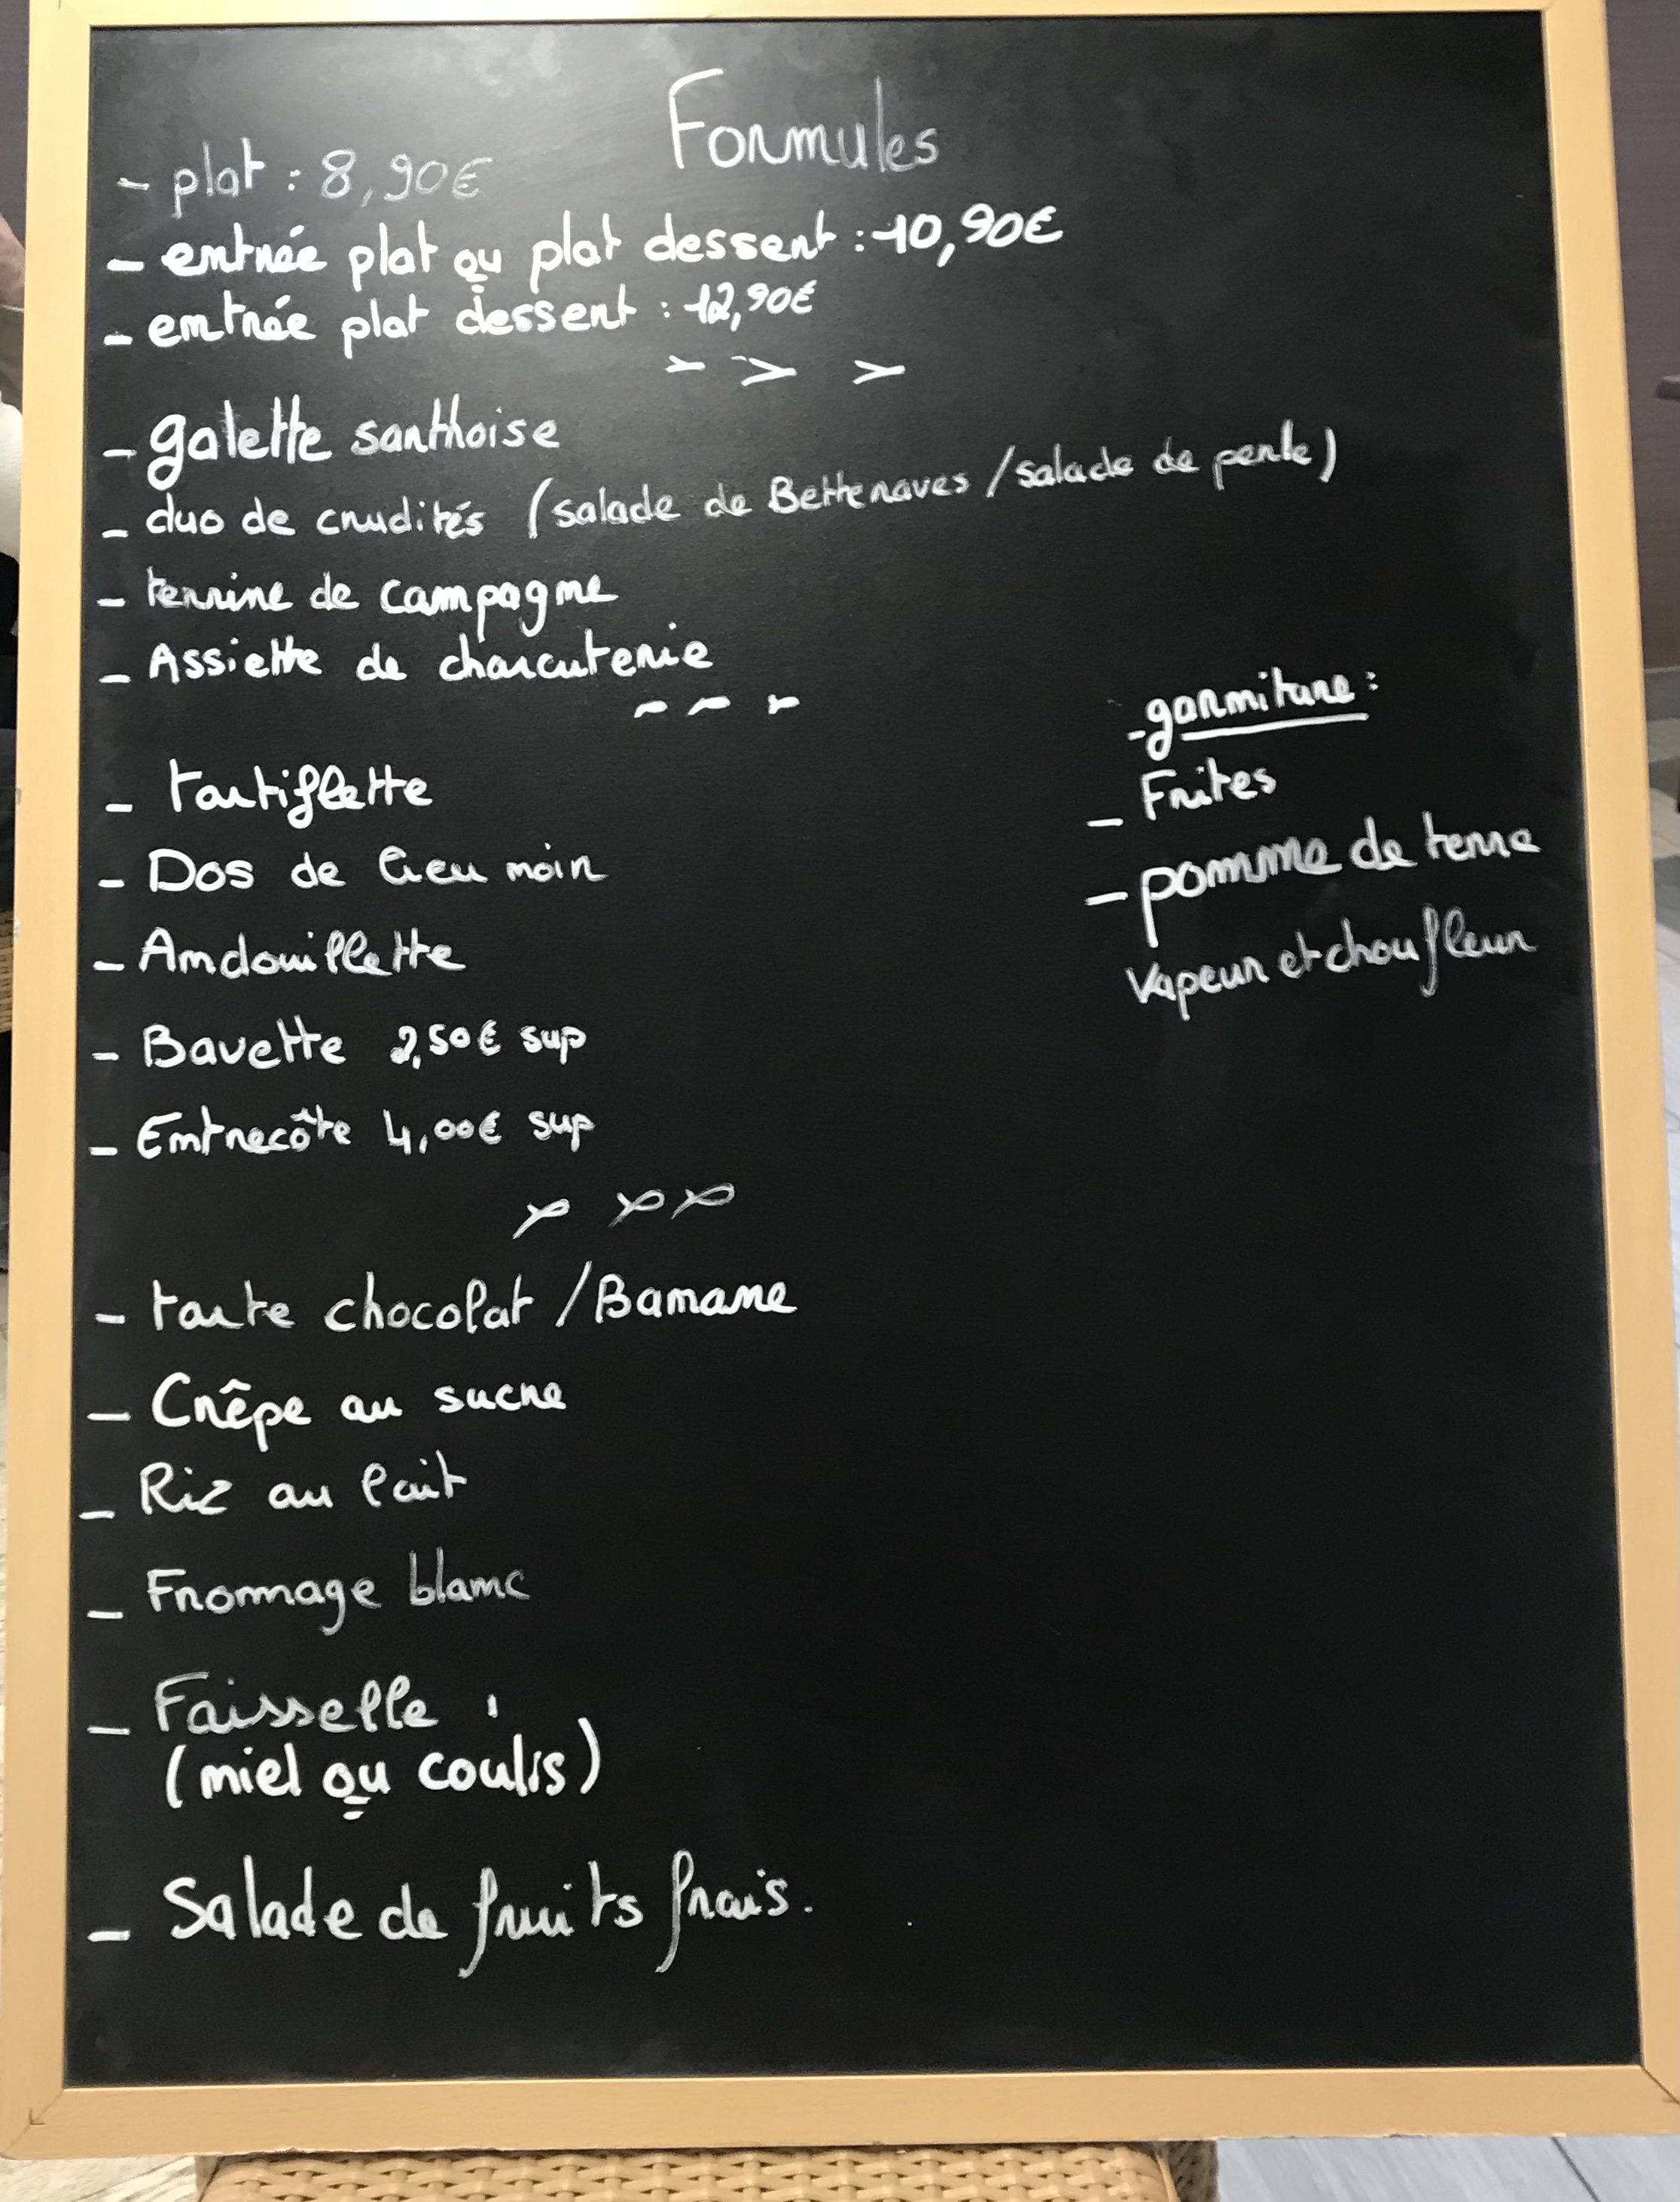 Formules
- plat : 8,90€
- entrée plat ou plat dessert : 10,90€
- entrée plat dessert : 12,90€
- galette sarthoise
- duo de crudités (salade de Betteraves / salade de perle)
- terrine de campagne
- Assiette de charcuterie
- tartiflette
- Dos de lieu noir
- Andouillette
- Bavette 2,50€ sup
- Entrecôte 4,00€ sup
- garniture :
- Frites
- pomme de terre
vapeur et choufleur
- tarte chocolat / Banane
- Crêpe au sucre
- Riz au lait
- Fromage blanc
- Faisselle
(miel ou coulis)
- Salade de fruits frais.